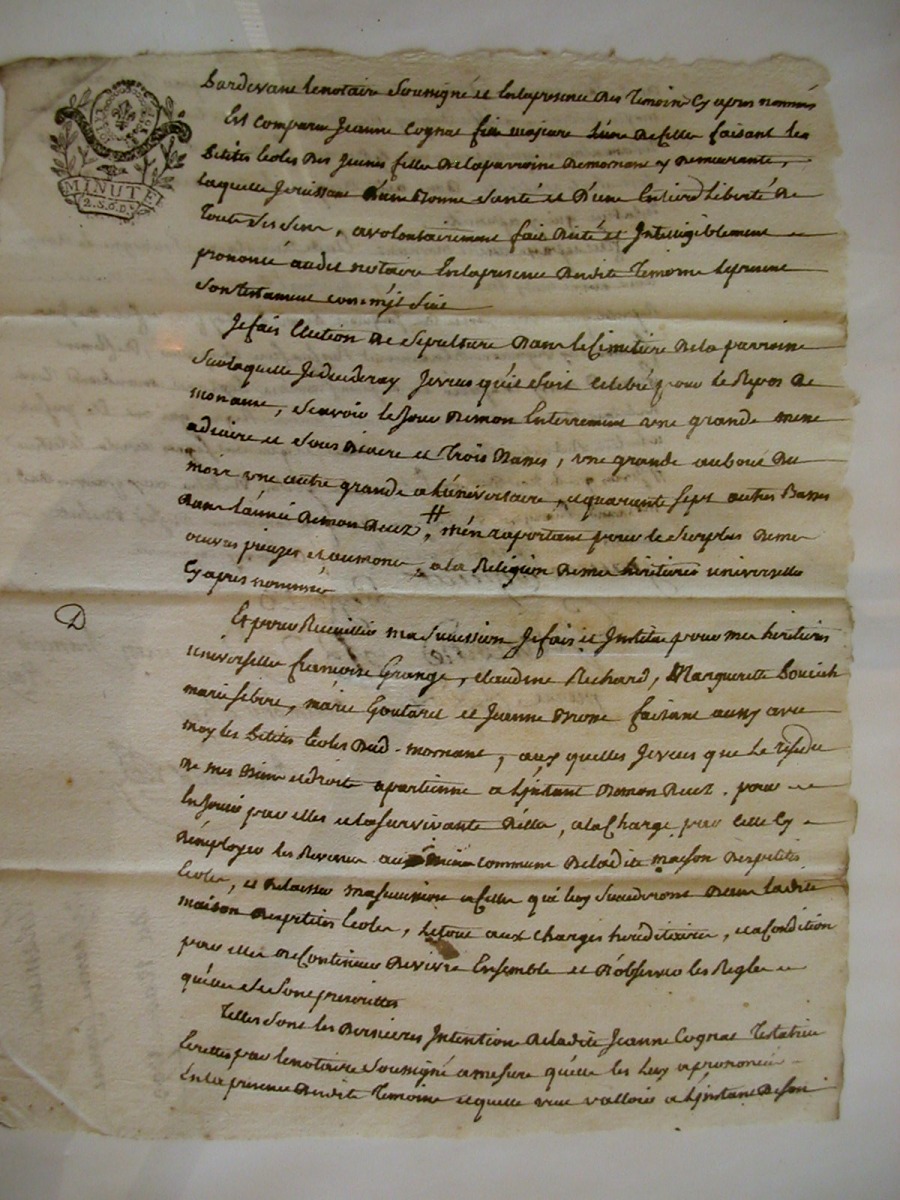 MINUTE
2. S. 6. D.
Pardevant le notaire Soussigné et En la presence Des Temoins Cy apres nommés
Est Comparue Jeanne Cognat fille majeure Libre De fille faisant les
Petites Ecoles Des Jeunes filles De la parroisse De mornant y Demeurante,
laquelle Jouissant D'une Bonne Santé et D'une Entiere Liberté De
Toute Ses Sens, a volontairement fait Dicté et Intelligiblement
prononcé audit notaire En la presence Desdits Temoins le present
Son testament comm'il Suit
Je fais Election De Sepulture Dans le Cimetière De la parroisse
Sur laquelle Je decederay Je veus qu'il Soit Celebré pour le Repos De
mon ame, Scavoir le Jour De mon Enterrement une grande messe
a diacre et Sous Diacre et Trois Basses, une grande au bout Du
mois une autre grande a l'aniversaire, et quarante Sept autres Basses
Dans L'année De mon Decez ⧺, m'en raportant pour le Surplus De mes
oeuvres pieuses et aumones, a la Religion De mes heritieres universelles
Cy apres nommées
D
Et pour Recueillir ma Succession Je fais et Institue pour mes heritieres
universelles francoise Grange, claudine Richard, Marguerite
marie fibre, marie Goutaret et Jeanne Brone faisant aussy avec
moy les Petites Ecoles Dud. mornant, aux quelles Je veus que le residu
De mes Biens et droits apartienne a L'instant De mon Decez. pour
En Jouir par elles et la Survivante D'elles, a la Charge par Celle Cy
D'employer les Revenus au commun De la dite maison Des petites
Ecoles, et De laisser ma Succession a Celles qui luy Succederont Dans la dite
maison Des petites Ecoles, Le tout aux charges hereditaires, et a Condition
par elles De Continuer De vivre Ensemble et D'observer les Regles
qu'elles Se Sont prescrittes
Telles Sont les Dernieres Intentions De la dite Jeanne Cognat Testatrice
Ecrittes par le notaire Soussigné a mesure qu'elle les Luy a prononcé
En la presence Desdits Temoins et quelle veut valloir a L'instant De Son